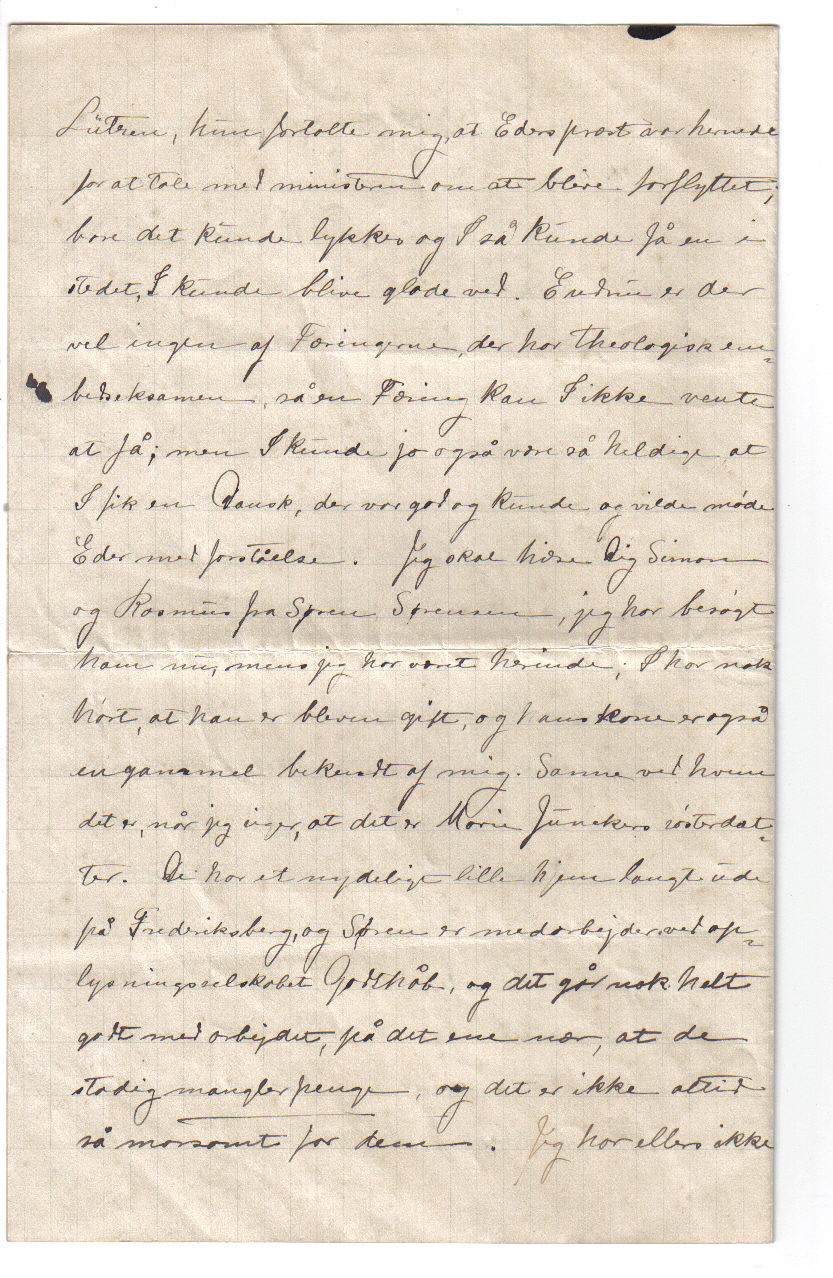 Lützen, hun fortalte mig, at Eders præst var hernede
for at tale med ministeren om at blive forflyttet;
bare det kunde lykkes og I så kunde få en i
stedet, I kunde blive glade ved. Endnu er der
vel ingen af Færingerne, der har theologisk em-
bedseksamen, så en Færing kan I ikke vente
at få; men I kunde jo også være så heldige, at
I fik en Dansk, der var god og kunde og vilde møde
Eder med forståelse. Jeg skal hilse Dig Simon
og Rasmus fra Søren Sørensen, jeg har besøgt
ham nu, mens jeg har været herinde; I har nok
hørt, at han er bleven gift, og hans kone er også
en gammel bekendt af mig. Sanne ved hvem
det er, når jeg siger, at det er Marie Junckers søsterdat-
ter. De har et nydeligt lille hjem langt ude
på Frederiksberg, og Søren er medarbejder ved op-
lysningsselskabet Godthåb, og det går nok helt
godt med arbejdet, på det ene nær, at de
stadig mangler penge, og det er ikke altid
så morsomt for dem. Jeg har ellers ikke